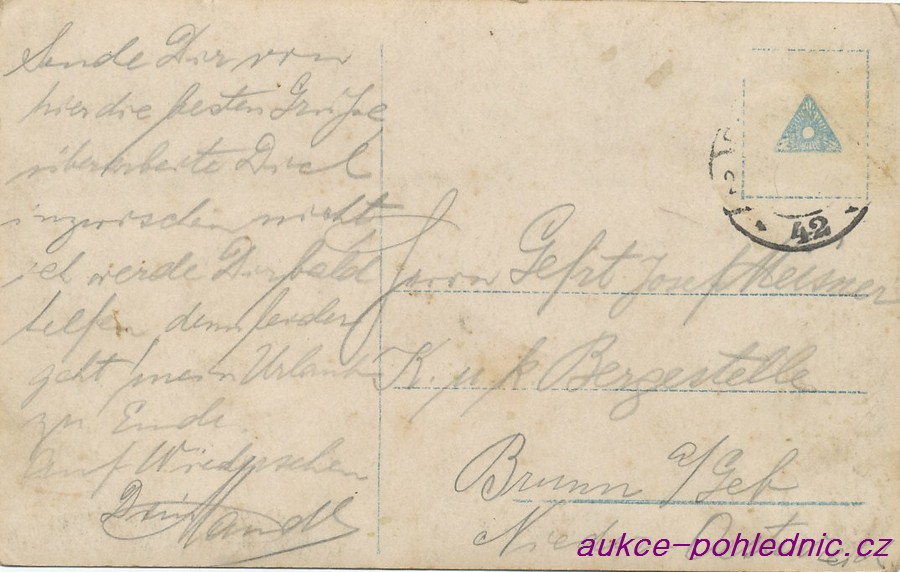 Sende Dir von
hier die besten Grüße
überarbeite Dich
inzwischen nicht
ich werde Dir bald
helfen, denn leider
geht mein Urlaub
zu Ende.
Auf Wiedersehen
Dein Mandl
42
Herrn Gefrt Josef Meisner
K. u k Bergestelle
Brunn a/Geb
Nied. Österreich
aukce-pohlednic.cz